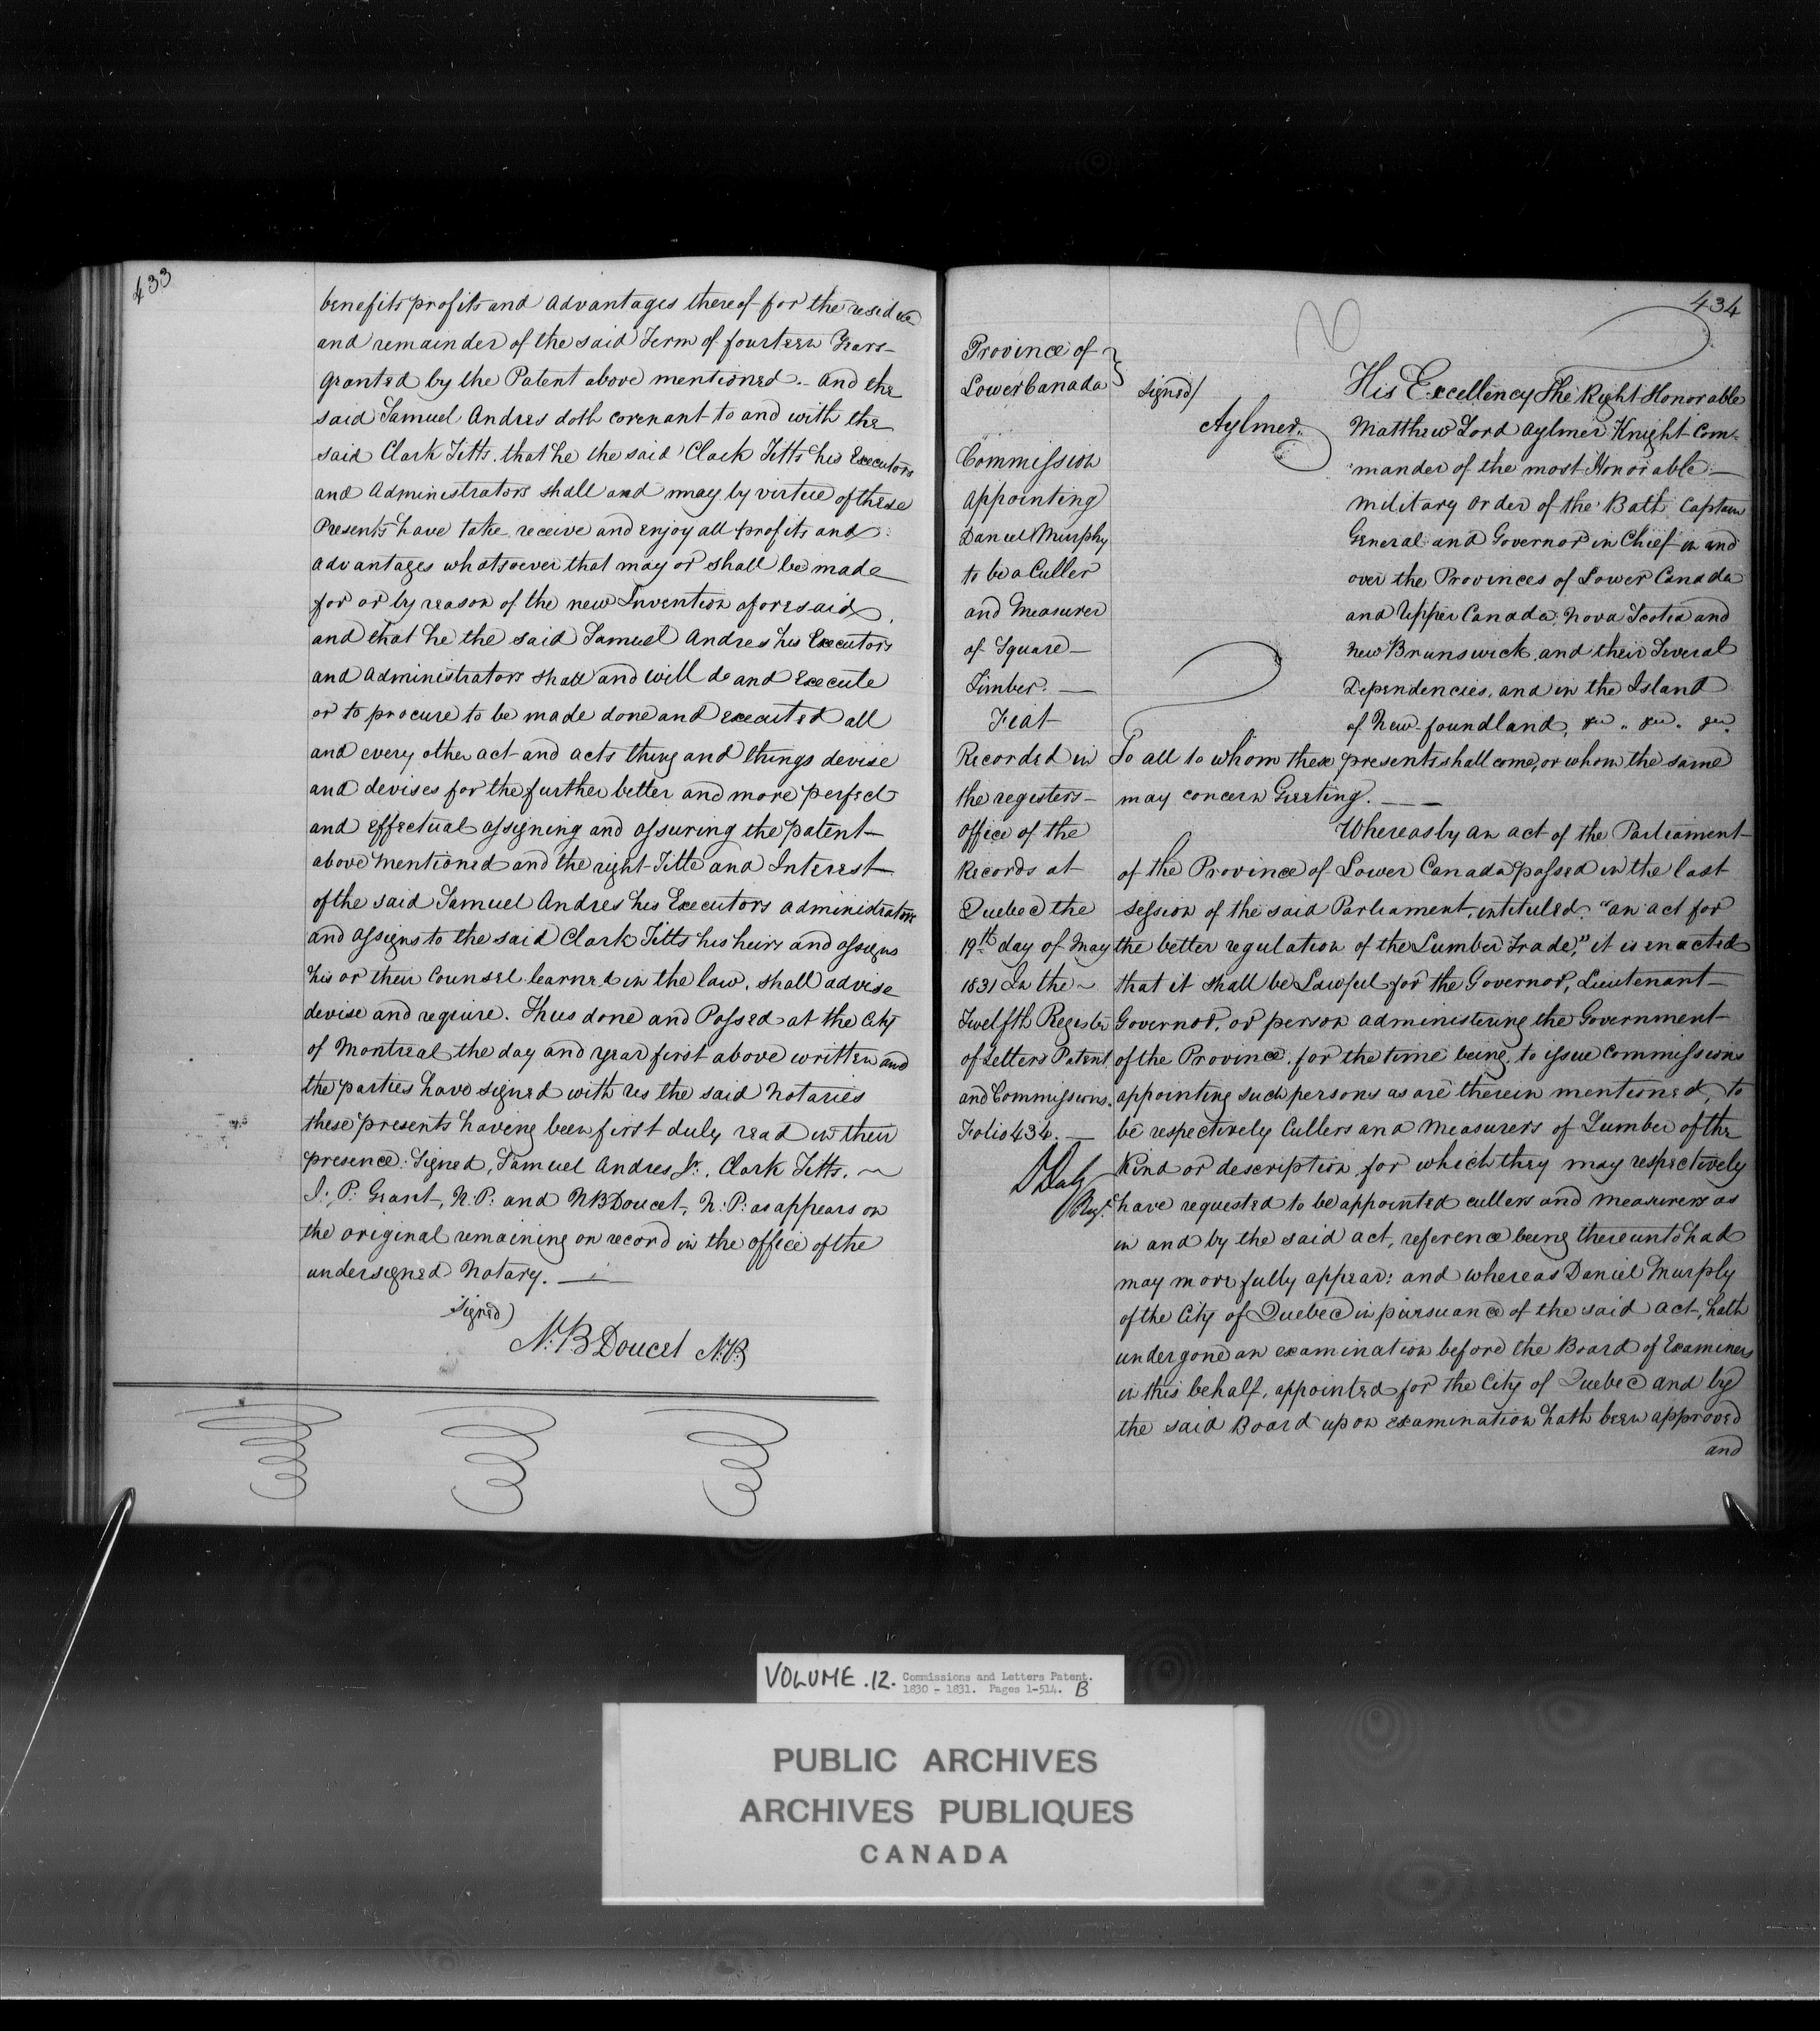 433
benefits profits and advantages thereof for the residue
and remainder of the said Term of fourteen Years
granted by the Patent above mentioned. and the
said Samuel Andres doth covenant to and with the
said Clark Fitts. that he the said Clark Fitts his Executors
and Administrators shall and may by virtue of these
Presents have take receive and enjoy all profits and
advantages whatsoever that may or shall be made
for or by reason of the new Invention aforesaid,
and that he the said Samuel Andres his Executors
and Administrators shall and will do and Execute
or to procure to be made done and executed all
and every other act and acts thing and things devise
and devises for the further better and more perfect
and effectual assigning and assuring the patent
above mentioned and the right Title and Interest
of the said Samuel Andres his Executors administrators
and assigns to the said Clark Fitts his heirs and assigns
his or their Counsel learned in the law, shall advise
devise and require. Thus done and Passed at the City
of Montreal the day and year first above written and
the parties have signed with us the said Notaries
these presents having been first duly read in their
presence. Signed, Samuel Andres Jr., Clark Fitts.
J. P. Grant, N.P. and NBDoucet, N.P. as appears on
the original remaining on record in the office of the
undersigned Notary.
Signed)
N.B Doucet N.P.
434
Province of }
Lower Canada
Commission
appointing
Daniel Murphy
to be a Culler
and Measurer
of Square
Timber.
Fiat
Recorded in
the registers
office of the
Records at
Quebec the
19th day of May
1831 In the
Twelfth Register
of Letters Patent
and Commissions.
Folio 434.
DDaly
Regr.
Signed/
Aylmer.
His Excellency The Right Honorable
Matthew Lord Aylmer Knight Com-
mander of the most Honorable
Military Order of the Bath Captain
General and Governor in Chief in and
over the Provinces of Lower Canada
and Upper Canada, Nova Scotia and
New Brunswick, and their Several
Dependencies, and in the Island
of New-foundland, &c. &c. &c.
To all to whom these presents shall come, or whom the same
may concern Greeting.
Whereas by an act of the Parliament
of the Province of Lower Canada passed in the last
Session of the said Parliament, intituled, "an act for
the better regulation of the Lumber Trade," it is enacted
that it shall be Lawful for the Governor, Lieutenant
Governor, or person administering the Government
of the Province, for the time being, to issue Commissions
appointing such persons as are therein mentioned, to
be respectively Cullers and Measurers of Lumber of the
Kind or description for which they may respectively
have requested to be appointed cullers and measurers as
in and by the said act, reference being thereunto had
may more fully appear: and whereas Daniel Murphy
of the City of Quebec in pursuance of the said act, hath
undergone an examination before the Board of Examiners
in this behalf, appointed for the City of Quebec and by
the said Board upon examination hath been approved
and
VOLUME .12. Commissions and Letters Patent.
1830 - 1831. Pages 1-514. B
PUBLIC ARCHIVES
ARCHIVES PUBLIQUES
CANADA